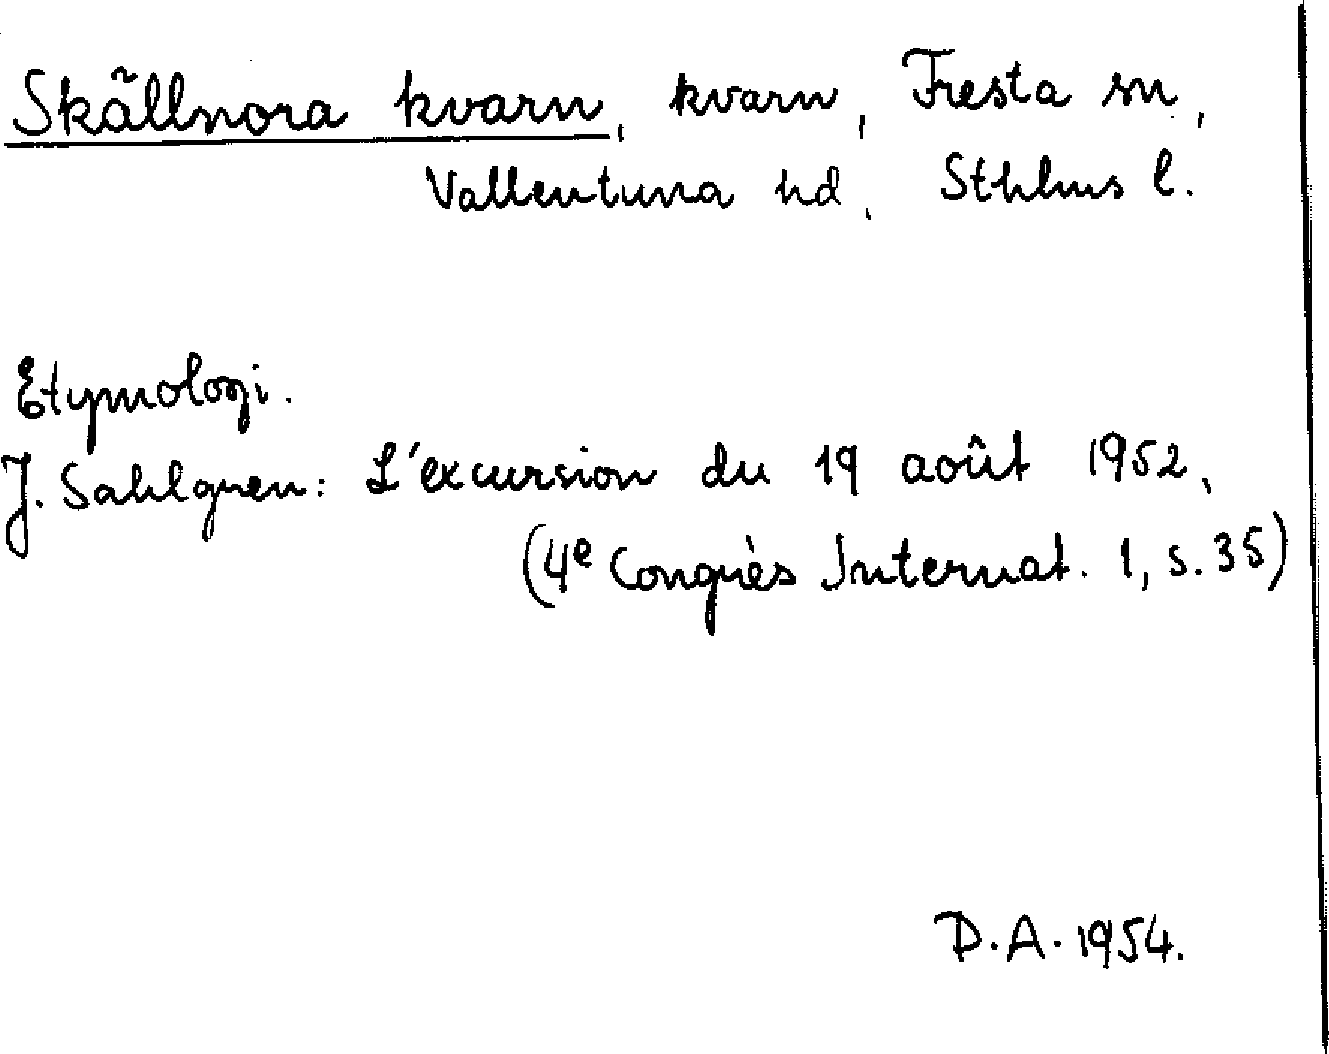 Skällnora kvarn, kvarn, Fresta sn,
Vallentuna hd, Sthlms l.
Etymologi.
J. Sahlgren: L'excursion du 19 août 1952,
(4e Congrès Internat. 1, s. 35)
D.A. 1954.